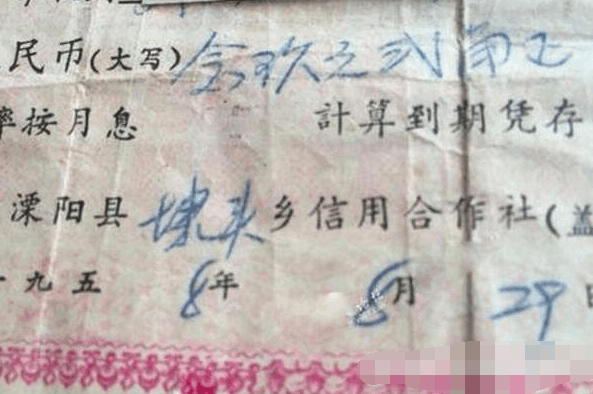 民币(大写)念玖元弍角正
率按月息 計算到期凭存
溧阳县埭头乡信用合作社(盖
九五8年8月29日